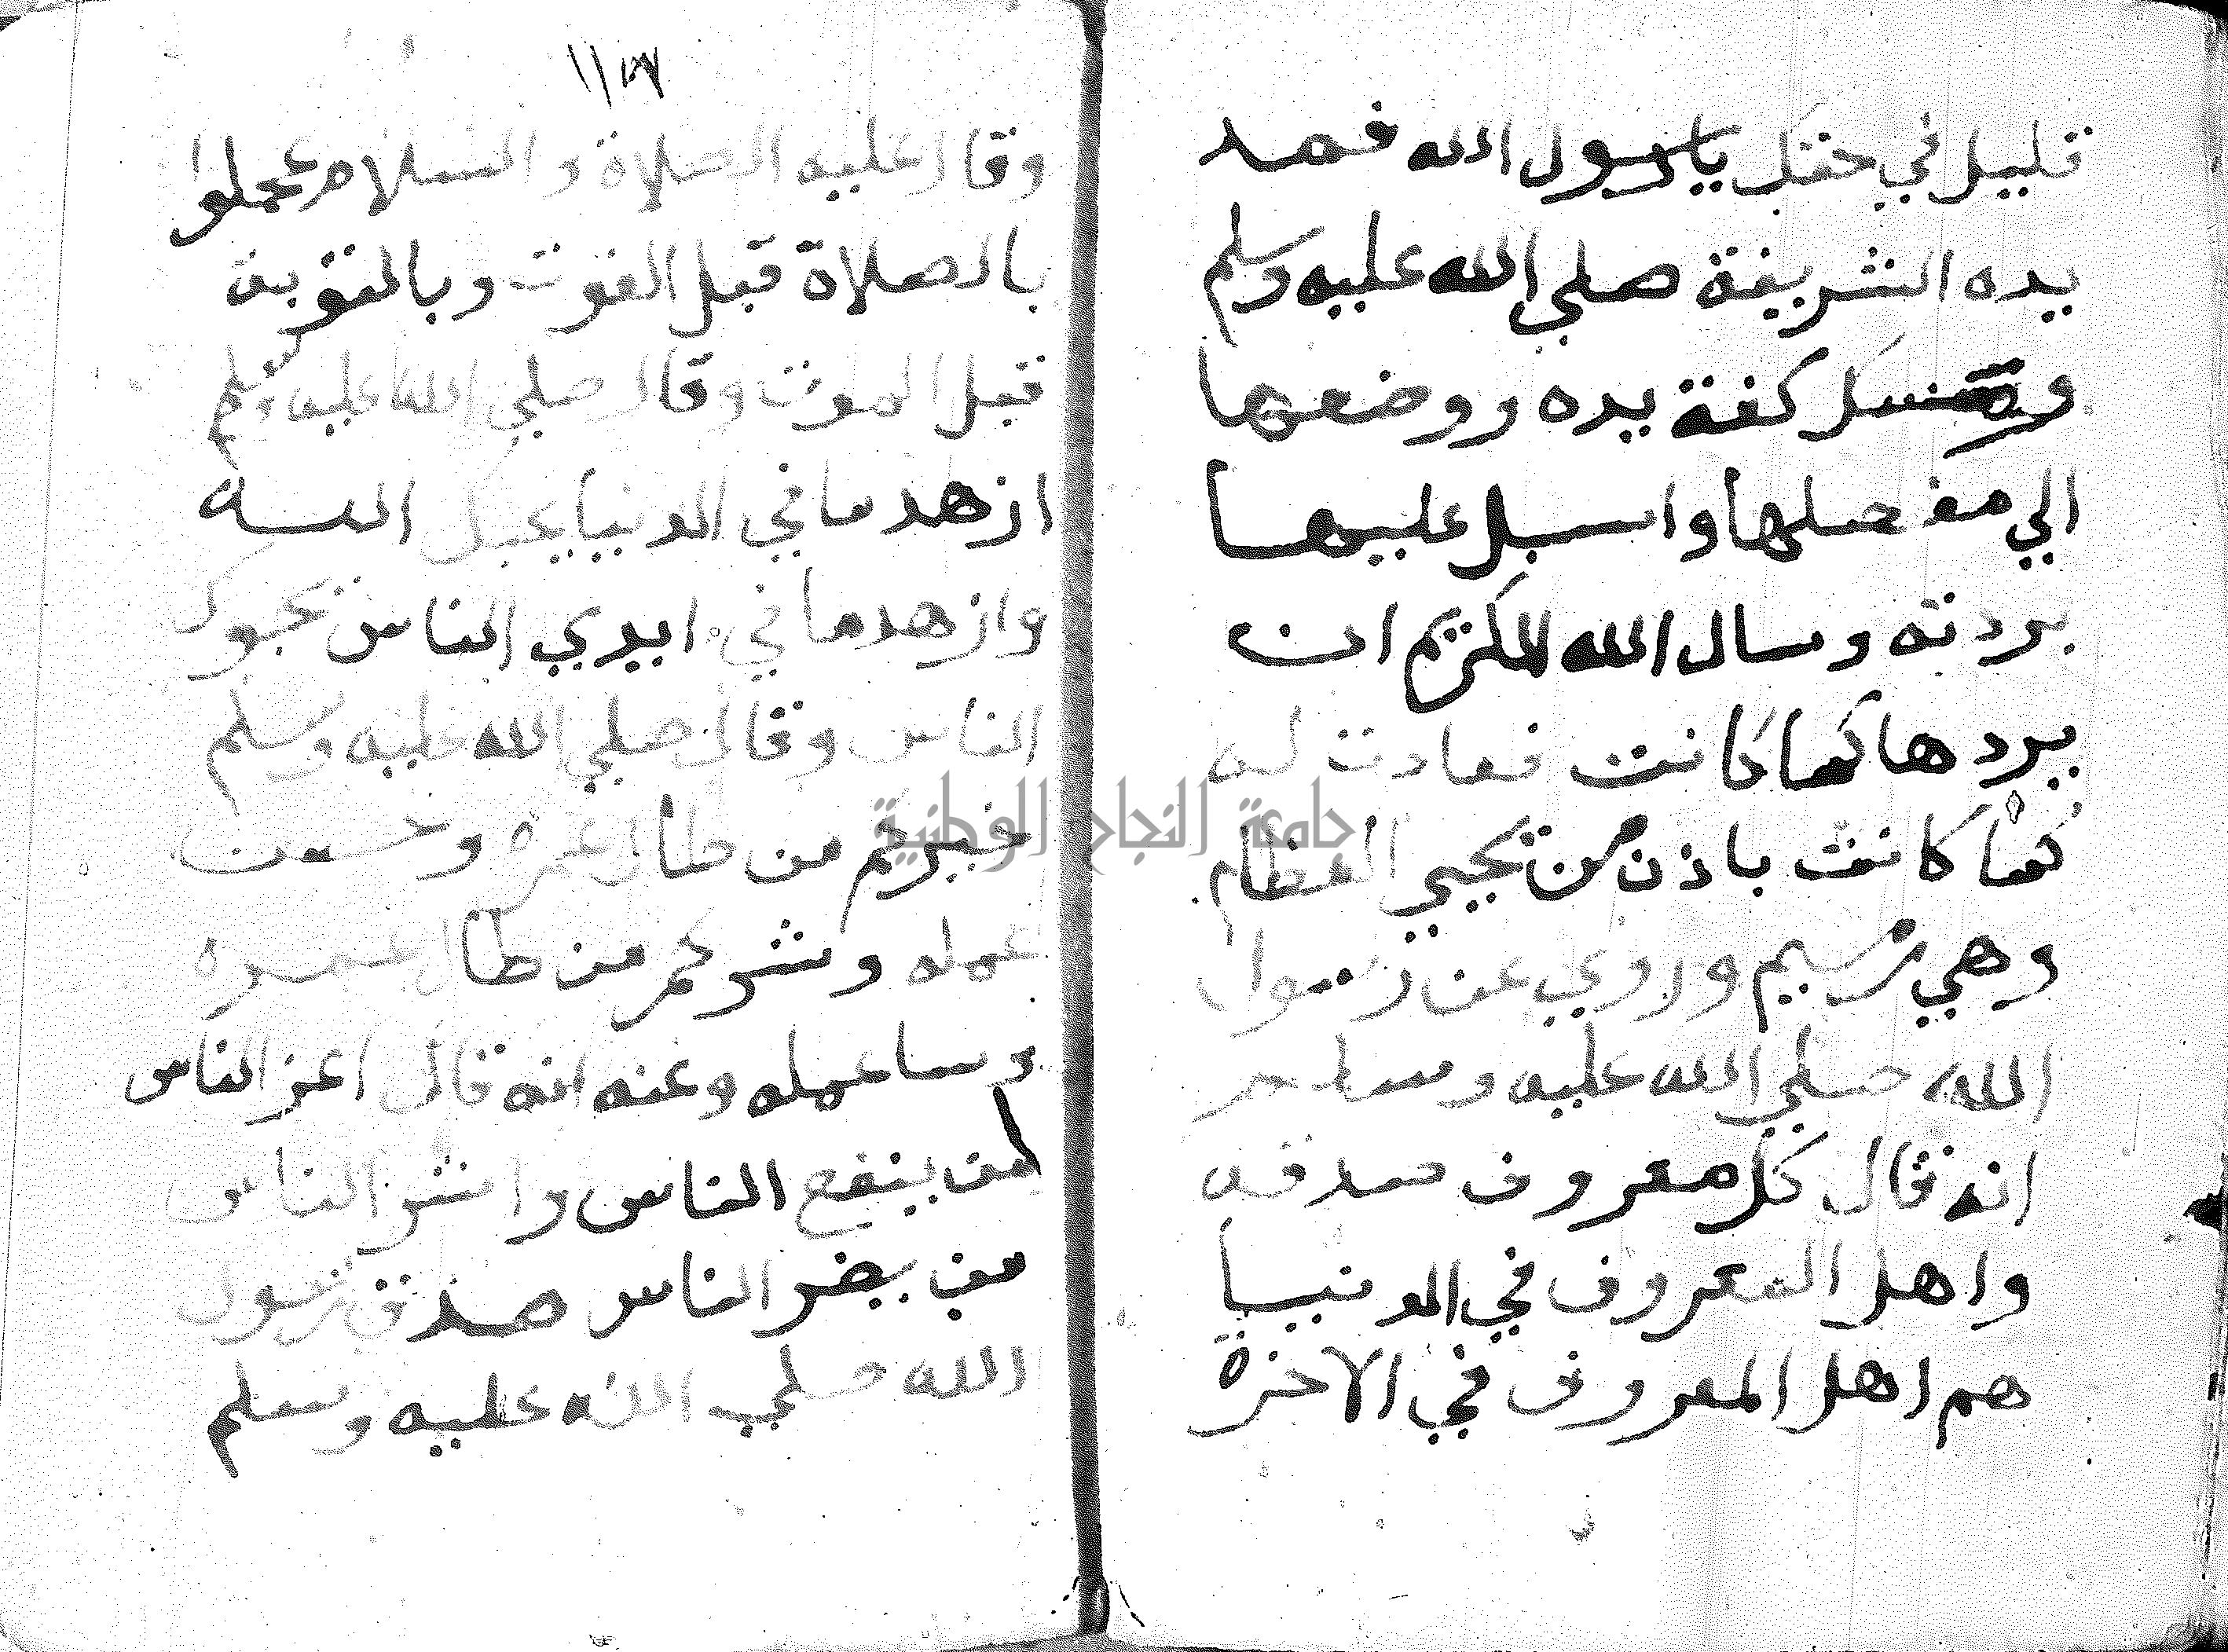 قليل في حقك يا رسول الله فمد
يده الشريفة صلي الله عليه وسلم
كفة يده ووضعها
الي مفصلها واسبل عليها
بردته وسال الله الكريم ان
يردها كما كانت فعادت له
كما كانت باذن من يحيي العظام
وهي رميم وروي عن رسول
الله صلي الله عليه وسلم
انه قال كل معروف صدقه
واهل المعروف في الدنيا
هم اهل المعروف في الاخرة
وقال عليه الصلاة والسلام عجلوا
بالصلاة قبل الفوت وبالتوبة
قبل الموت وقال صلي الله عليه وسلم
ازهد ما في الدنيا يحبك الله
وازهد ما في ايدي الناس يحبوك
الناس وقال صلي الله عليه وسلم
خيركم من طال عمره وحسن
عمله وشركم من طال عمره
وسا عمله وعنه انه قال اعز الناس
من ينفع الناس واشر الناس
من يضر الناس صدق رسول
الله صلي الله عليه وسلم
جامعة النجاح الوطنية